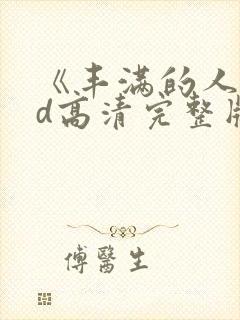 《丰满的人
d高清完整版
傅醫生